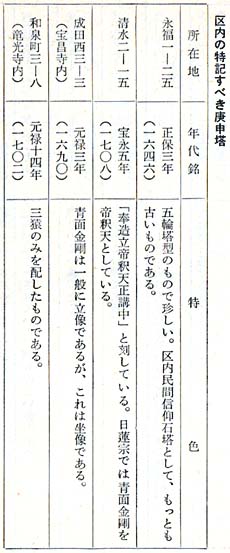 区内の特記すべき庚申塔
所在地
年代銘
特色
永福一−二五
正保三年
(一六四六)
五輪塔型のもので珍しい。区内民間信仰石塔として、もっとも
古いものである。
清水二−一五
宝永五年
(一七〇八)
「奉造立帝釈天正講中」と刻している。日蓮宗では青面金剛を
帝釈天としている。
成田西三−三
(宝昌寺内)
元禄三年
(一六九〇)
青面金剛は一般に立像であるが、これは坐像である。
和泉町三−八
(竜光寺内)
元禄十四年
(一七〇一)
三猿のみを配したものである。